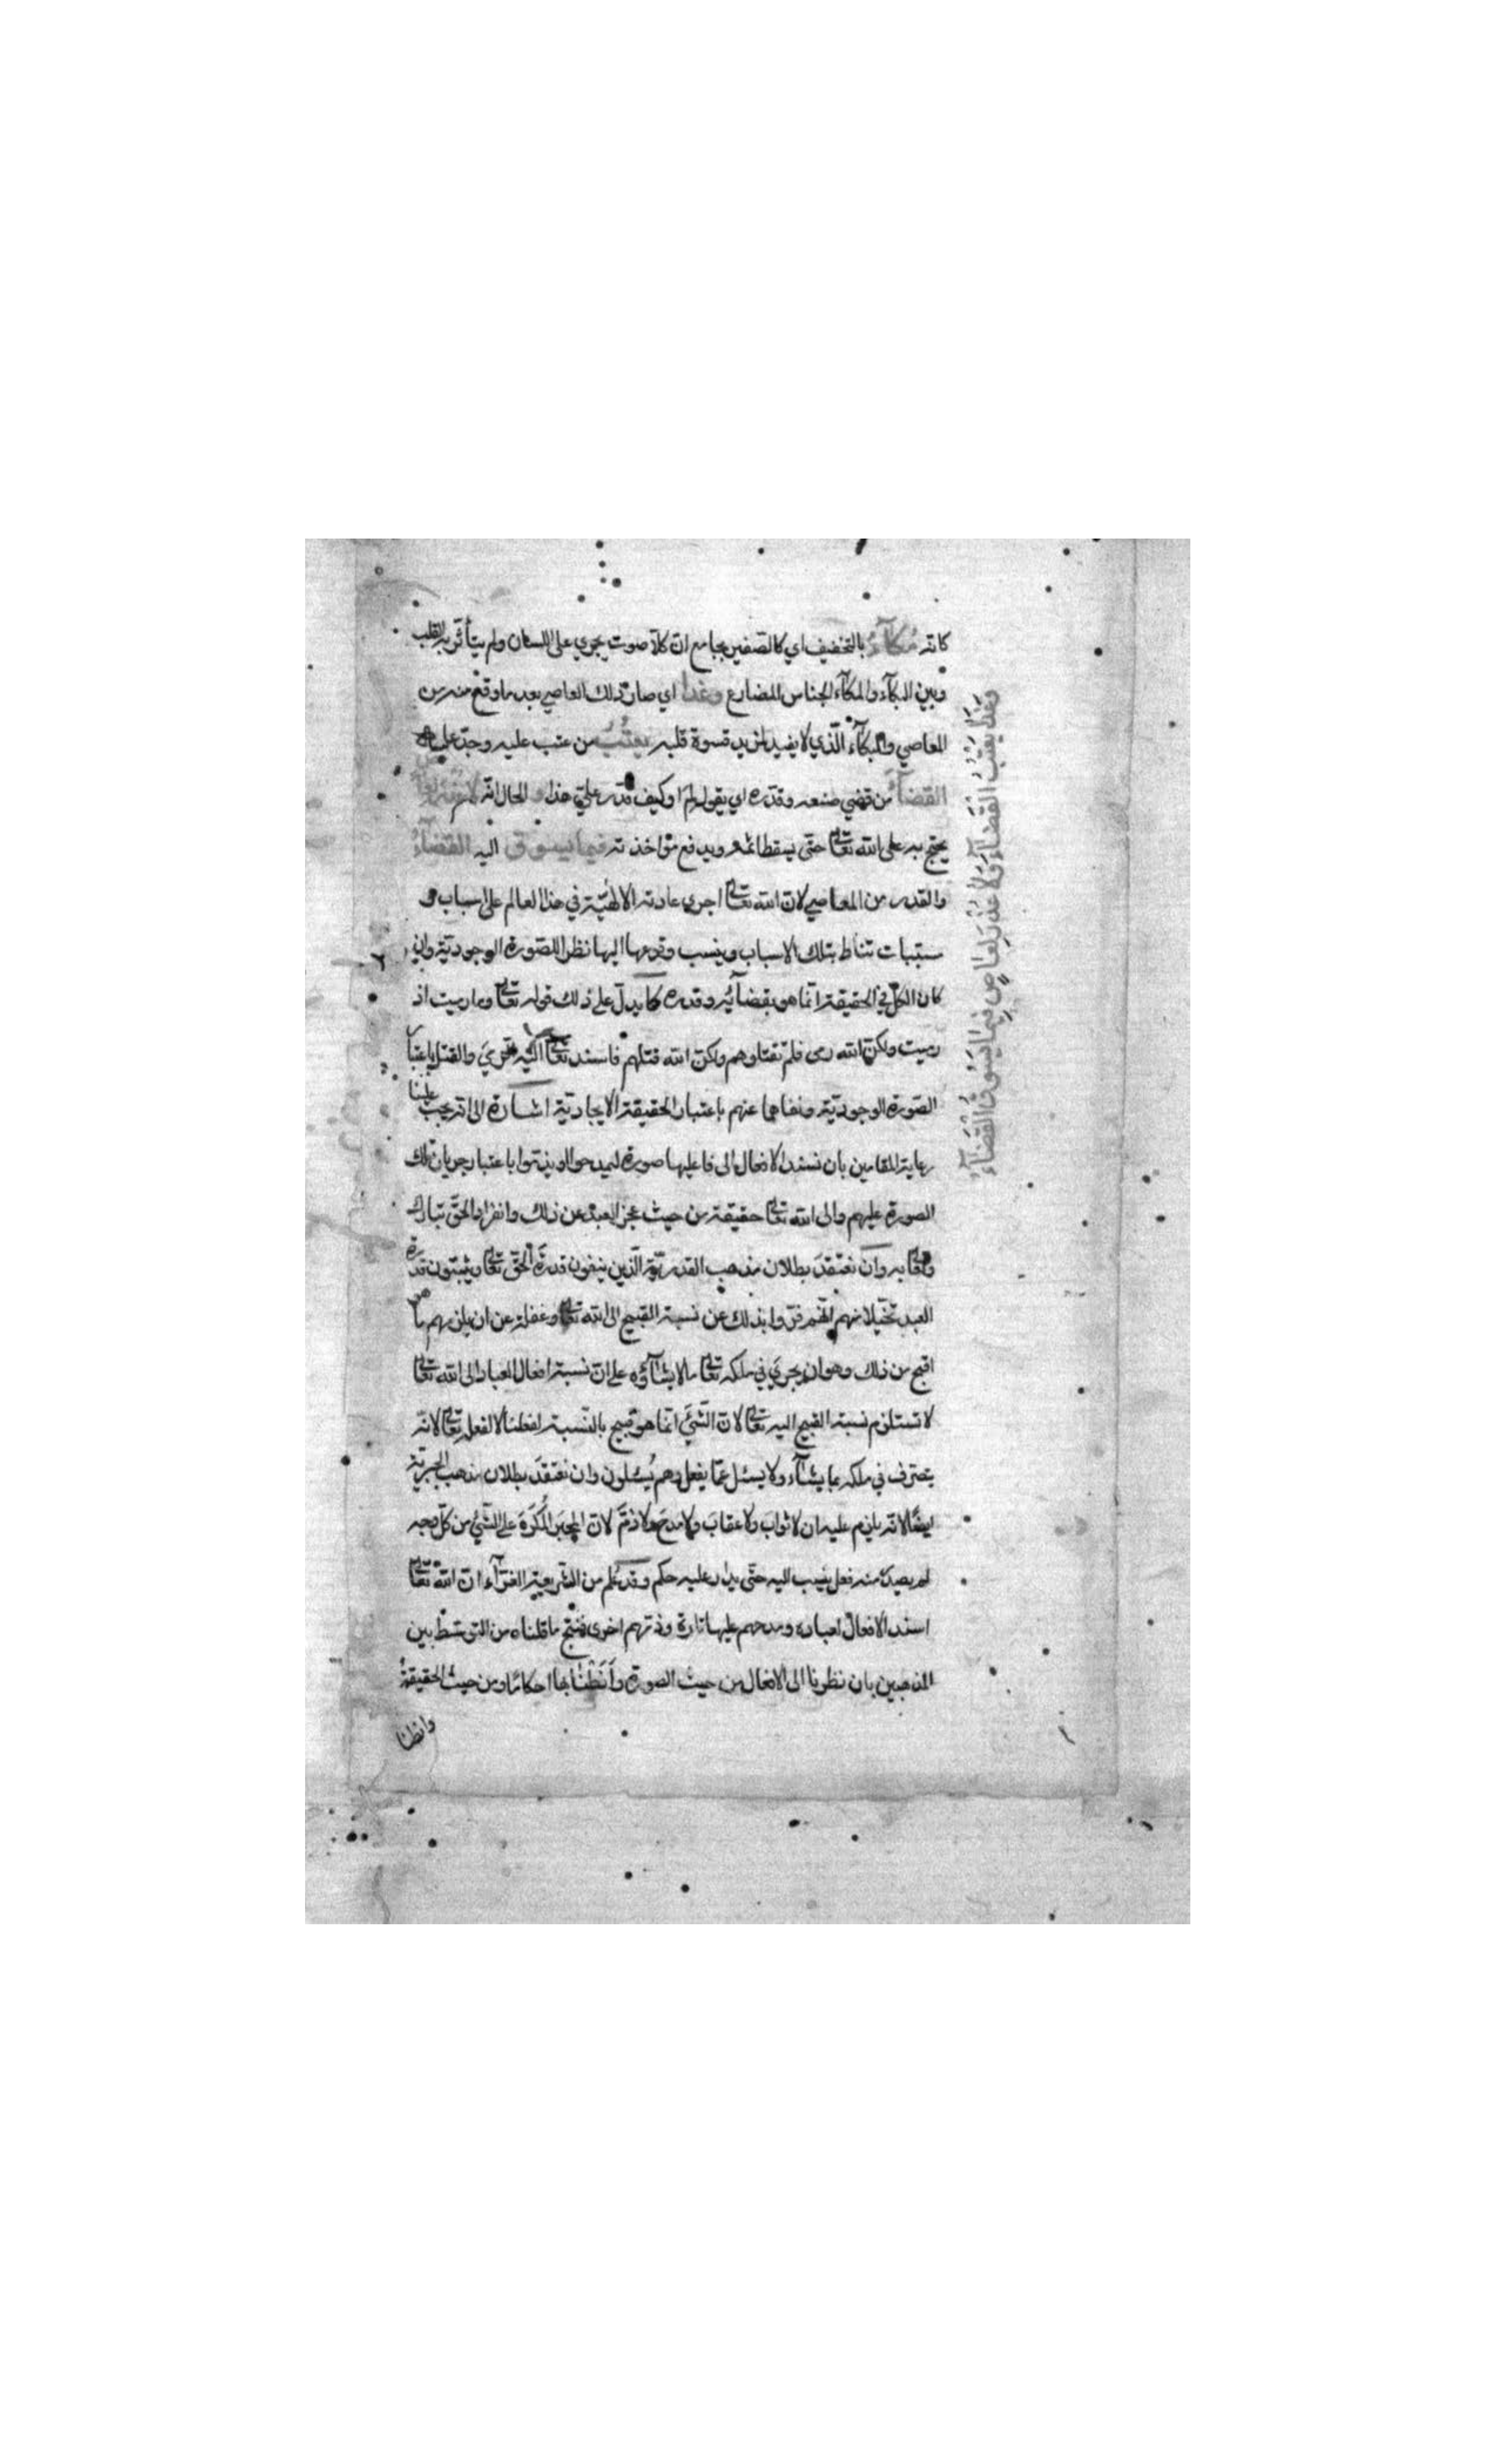 كانه مُكآءُ بالتخفيف اي كالصفير بجامع ان كلّا صوت يجري على اللسان ولم يتأثر به القلب
وبين البكآء والمكآء الجناس المضارع وغدا اي صار ذلك العاصي بعد ما وقع منه من
المعاصي والبكآء الّذي لا يفيد لمزيد قسوة قلبه يعتُبُ من عتب عليه وجد عليه
القضآءَ من قضي صنعه وقدّره اي يقول لم او كيف قدر عليّ هذا و الحال انّه لا عذر لعاص
يحتج به على الله تعالى حتى يسقط اثمه ويدفع مؤاخذته فيما يسوق اليه القضآءُ
والقدر من المعاصي لان الله تعالى اجرى عادته الالهيّة في هذا العالم على اسباب و
مسببات تناط بتلك الاسباب وينسب وقوعها اليها نظرا للصورة الوجوديّة وان
كان الكلّ في الحقيقة انما هو بقضآئه وقدره كما يدلّ على ذلك قوله تعالى وما رميت اذ
رميت ولكنّ الله رمى فلم تقتلوهم ولكنّ الله قتلهم فاسند تعالى اليهم الرمي والقتل باعتبار
الصّورة الوجوديّة ونفاهما عنهم باعتبار الحقيقة الايجاديّة اشارة الى انه يجب علينا
رعاية المقامين بان نسند الافعال الى فاعليها صورة ليمدحوا او يذمّوا باعتبار جريان تلك
الصورة عليهم والى الله تعالى حقيقة من حيث عجز العبد عن ذلك وانفراد الحقّ تبارك
وتعالى به وان نعتقدَ بطلان مذهب القدريّة الّذين ينفون قدرةَ الحق تعالى ويثبتون قدرة
العبد تخيّلا منهم انّهم فرّوا بذلك عن نسبة القبيح الى الله تعالى وغفلة عن ان يلزمهم ما هو
اقبح من ذلك وهو ان يجري في ملكه تعالى ما لا يشآؤه على ان نسبة افعال العباد الى الله تعالى
لا تستلزم نسبة القبيح اليه تعالى لان الشّيَ انما هو قبيح بالنّسبة لفعلنا لا لفعله تعالى لانّه
يتصرف في ملكه بما يشآء ولا يسئل عمّا يفعل وهم يُسئلون وان نعتقدَ بطلان مذهب الجبريّة
ايضًا لانه يلزم عليه ان لا ثوابَ ولا عقابَ ولا مدحَ ولا ذمَّ لان المجبَر المُكرَهَ على الشّيُ من كلّ وجه
لم يصدر منه فعل ينسب اليه حتى يدار عليه حكم وقد عُلم من الشّريعة الغرّآء ان الله تعالى
اسند الافعال لعباده ومدحهم عليها تارة وذمّهم اخرى فنتج ما قلناه من التوسّط بين
المذهبين بان نظرنا الى الافعال من حيث الصورة وأَنَطْنا بها احكامًا ومن حيث الحقيقة
وانطنا
وغدَا يعتِبُ القَضآءَ ولَا عُذْرَ لعاصٍ فِيمَا يَسُوقُ القَضَآءُ